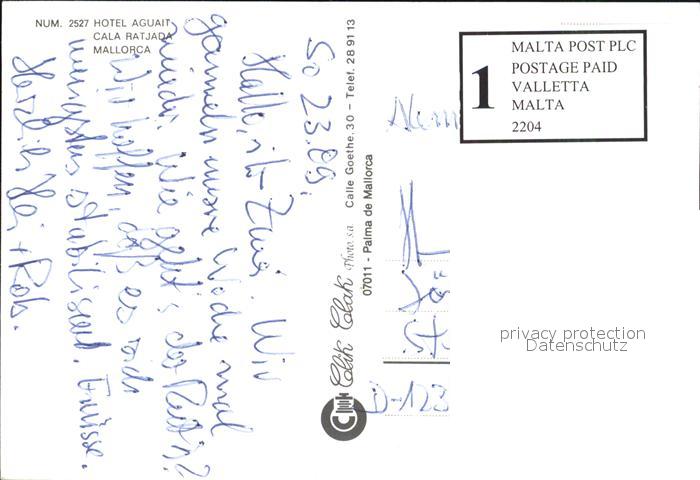 NUM. 2527 HOTEL AGUAIT
CALA RATJADA
MALLORCA
So 23.09.
Hallo, ihr Zwei. Wir
gammeln unsere Woche mal
wieder. Wie geht's
Wir hoffen, daß es sich
wenigstens stabilisiert. Grüsse.
Herzlich
Clik Clak Photo s.a. Calle Goethe. 30 – Telef. 28 91 13
07011 – Palma de Mallorca
1
MALTA POST PLC
POSTAGE PAID
VALLETTA
MALTA
2204
D-123
privacy protection
Datenschutz